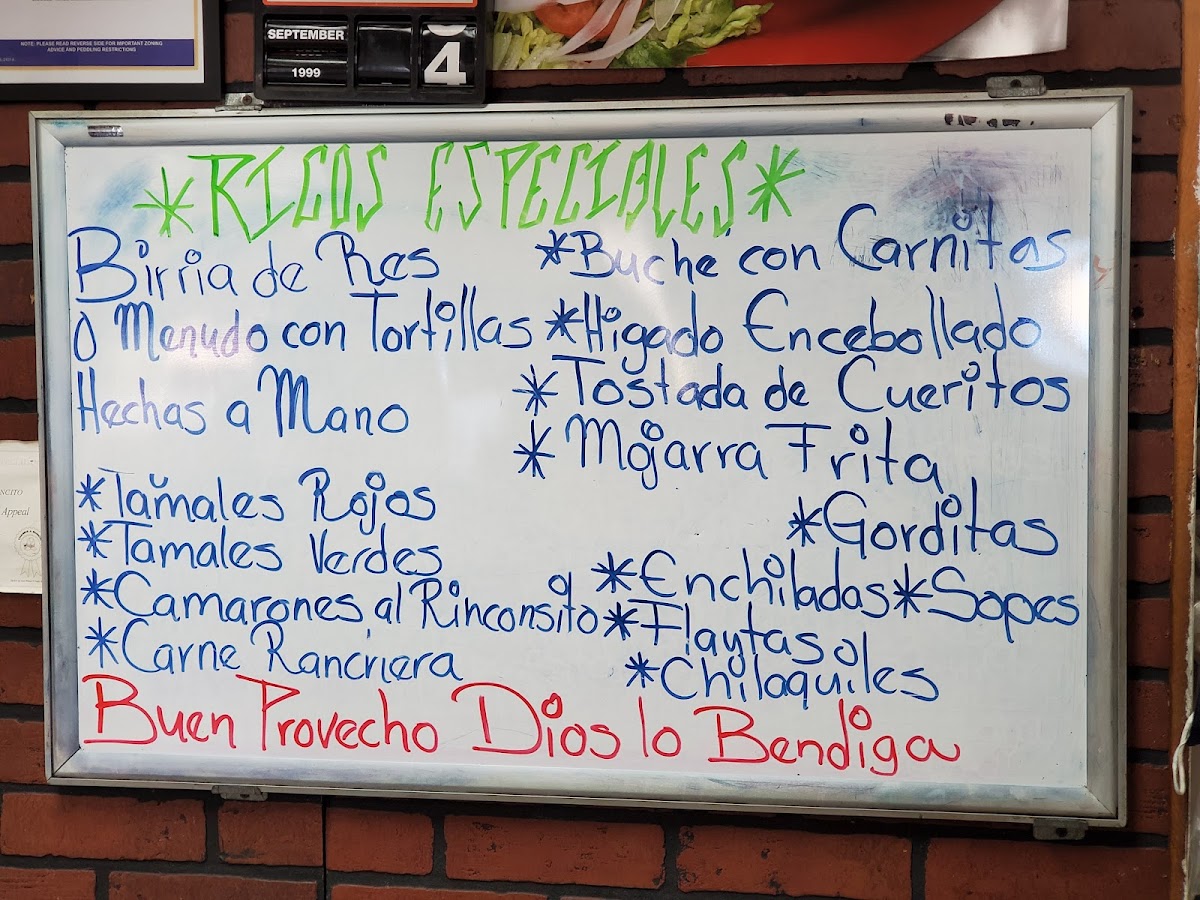 NOTE: PLEASE READ REVERSE SIDE FOR IMPORTANT ZONING
ADVICE AND PEDDLING RESTRICTIONS
SEPTEMBER
4
1999
*RICOS ESPECIALES*
Birria de Res
O Menudo con Tortillas
Hechas a Mano
*Tamales Rojos
*Tamales Verdes
*Camarones al Rinconsito
*Carne Ranchera
*Buche con Carnitas
*Higado Encebollado
*Tostada de Cueritos
*Mojarra Frita
*Gorditas
*Enchiladas *Sopes
*Flaytas o
*Chilaquiles
Buen Provecho Dios lo Bendiga
Appeal